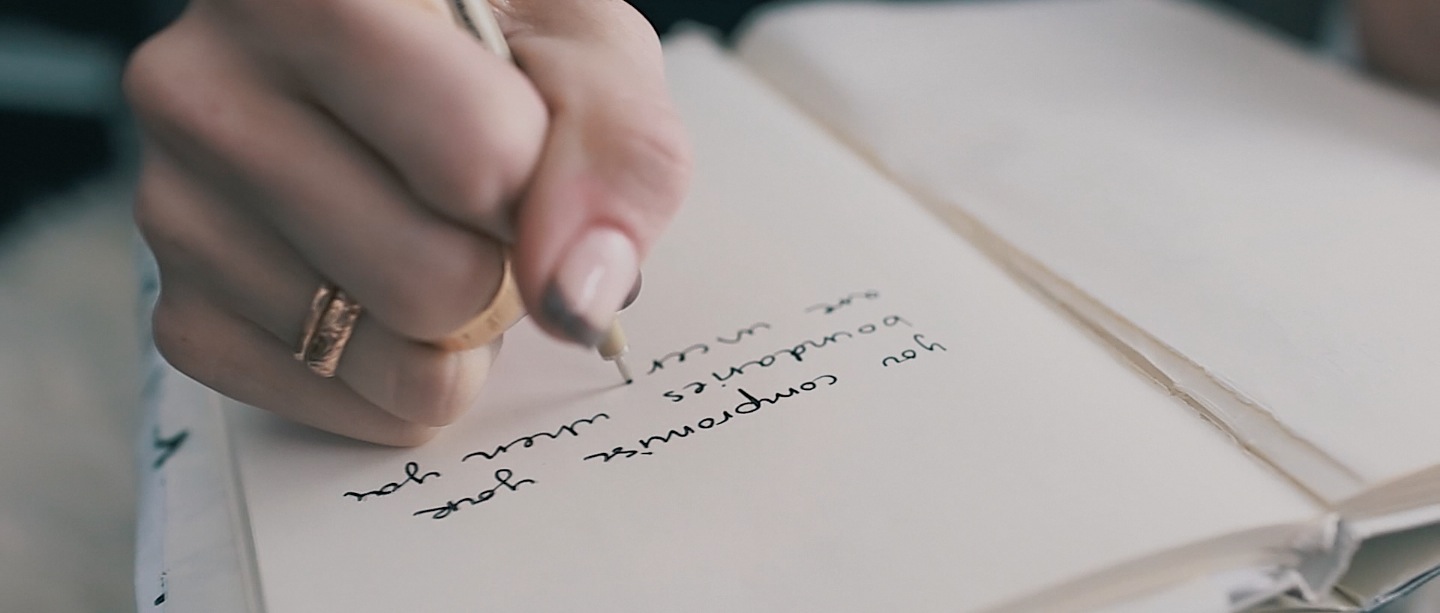 you compromise your
boundaries when you
are uncer